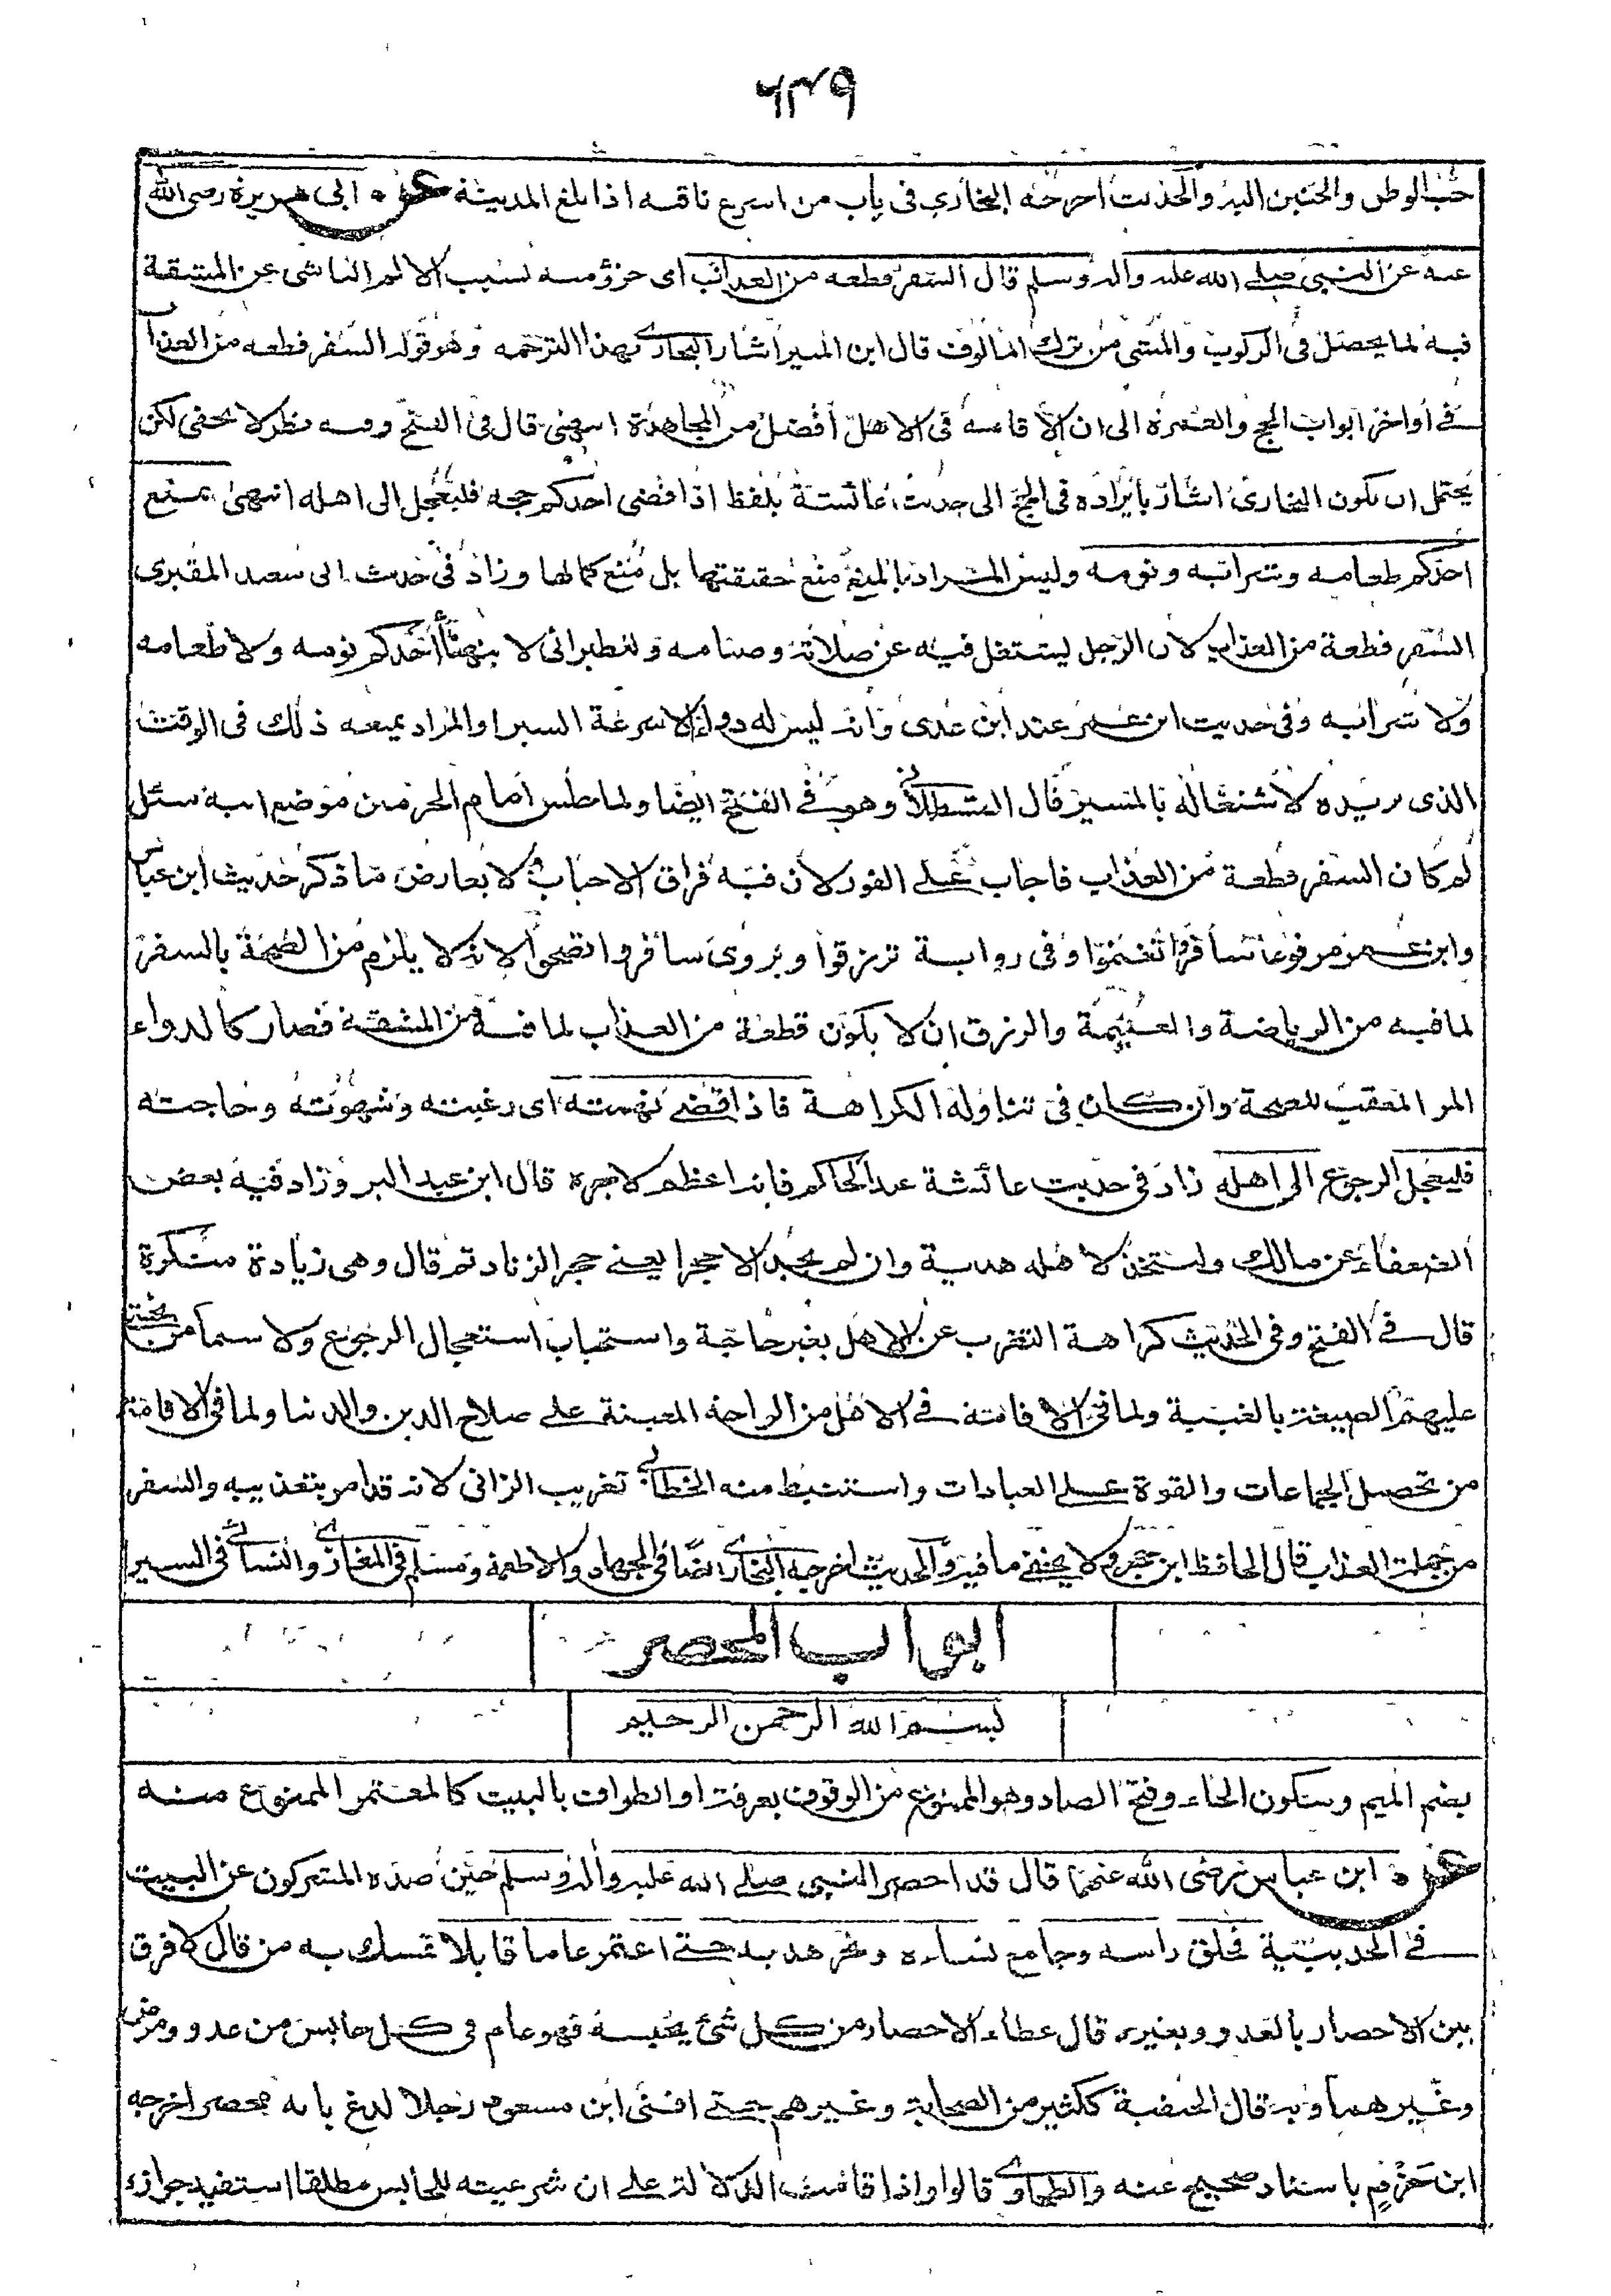 ٦٣٩
حب الوطن والحنين اليه والحديث اخرجه البخاري فى باب من اسرع ناقته اذا بلغ المدينة عن ابى هريرة رضى الله
عنه عن النبى صلے الله عليه واله وسلم قال السفر قطعه من العذاب اى جزؤ منه بسبب الالم الناشى عن المشقة
فيه لما يحصل فى الركوب والمشى من ترك المالوف قال ابن المنير اشار البخارى بهذا الترجمه وهو قوله السفر قطعه من العذاب
فے اواخر ابواب الحج والعمرة الى ان الاقامة فى الاهل افضل من المجاهدة انتهى قال فى الفتح وفيه نظر لا يخفى لكن
يحتمل ان يكون البخارى اشار بايراده فى الحج الى حديث عائشة بلفظ اذا قضى احدكم حجه فليعجل الى اهله انتهى يمنع
احدكم طعامه وشرابه ونومه وليس المراد بالمنع منع حقيقتها بل منع كمالها وزاد فى حديث ابى سعيد المقبرى
السفر قطعة من العذاب لان الرجل ليشتغل فيه عن صلاته وصيامه وللطبرانى لا يتهنأ احدكم نومه ولا طعامه
ولا شرابه وفى حديث ابن عمر عند ابن عدى وانه ليس له دواء الا سرعة السير والمراد يمنعه ذلك فى الوقت
الذى يريده لاشتغاله بالمسير قال القسطلانى وهو فے الفتح ايضا ولما جلس امام الحرمين موضع ابيه سئل
لم كان السفر قطعة من العذاب فاجاب علے الفور لان فيه فراق الاحباب ولا يعارض ما ذكر حديث ابن عباس
وابن عمر مرفوعا سافروا تغنموا وفى رواية ترزقوا ويروى سافروا تصحوا لانه لا يلزم من الصحة بالسفر
لما فيه من الرياضة والغنيمة والرزق ان لا يكون قطعة من العذاب لما فيه من المشقة فصار كالدواء
المر المعقب للصحة وان كان فى تناوله الكراهة فاذا قضے نهمته اى رغبته وشهوته وحاجته
فليعجل الرجوع الى اهله زاد فى حديث عائشة عند الحاكم فانه اعظم لاجره قال ابن عبد البر وزاد فيه بعض
الضعفاء عن مالك وليتخذ لاهله هدية وان لم يجد الا حجرا يعنے حجر الزناد ثم قال وهى زيادة منكرة
قال فے الفتح وفى الحديث كراهة التغرب عن الاهل بغير حاجة واستحباب استعجال الرجوع ولا سيما من يخشى
عليهم الضيعة بالغيبة ولما فى الاقامة فے الاهل من الراحة المعينة علے صلاح الدين والدنيا ولما فى الاقامة
من تحصيل الجماعات والقوة علے العبادات واستنبط منه الخطابى تغريب الزانى لانه قد امر بتعذيبه والسفر
من جملة العذاب قال الحافظ ابن حجر ولا يخفے ما فيه والحديث اخرجه البخارى ايضا فى الجهاد والاطعمة ومسلم فى المغازى والنسائى فى السير
ابواب المحصر
بسم الله الرحمن الرحيم
بضم الميم وسكون الحاء وفتح الصاد وهو الممنوع من الوقوف بعرفة او الطواف بالبيت كالمعتمر الممنوع منه
عن ابن عباس رضى الله عنهما قال قد احصر النبى صلے الله عليه واله وسلم حين صده المشركون عن البيت
فے الحديبية فحلق راسه وجامع نساءه ونحر هديه حتے اعتمر عاما قابلا تمسك به من قال لا فرق
بين الاحصار بالعدو وبغيره قال عطاء الاحصار من كل شئ يحبسه فهو عام فى كل حابس من عدو ومرض
وغيرهما وبه قال الحنفية ككثير من الصحابة وغيرهم حتے افتى ابن مسعود رجلا لدغ بانه محصر اخرجه
ابن حزم باسناد صحيح عنه والطحاوى قالوا واذا قامت الدلالة على ان شرعيته للحابس مطلقا استفيد جوازه